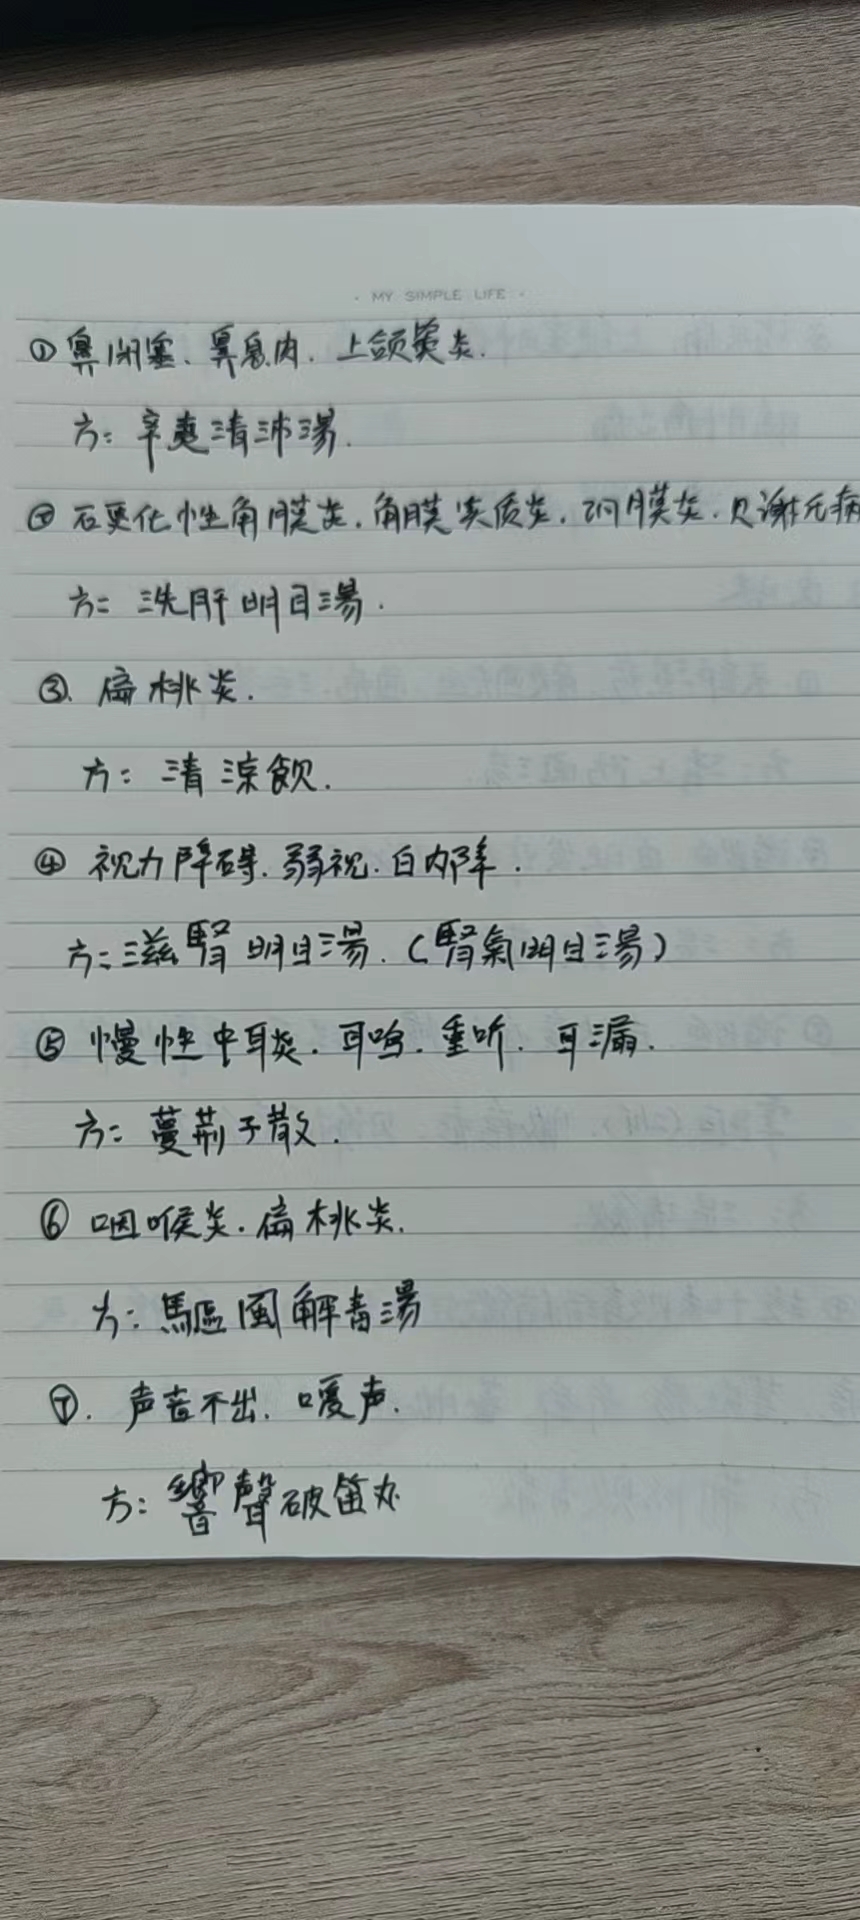 · MY SIMPLE LIFE ·
① 鼻闭塞、鼻息肉、上颌窦炎.
方: 辛夷清沛湯.
② 石更化性角膜炎, 角膜实质炎, 网膜炎, 贝谢氏病
方: 洗肝明目湯.
③. 扁桃炎.
方: 清涼飲.
④ 视力障碍. 弱视. 白内障.
方: 滋腎明目湯. (腎氣明目湯)
⑤ 慢性中耳炎. 耳鸣. 重听. 耳漏.
方: 蔓荊子散.
⑥ 咽喉炎. 扁桃炎.
方: 驅風解毒湯
⑦. 声音不出. 嗄声.
方: 響聲破笛丸